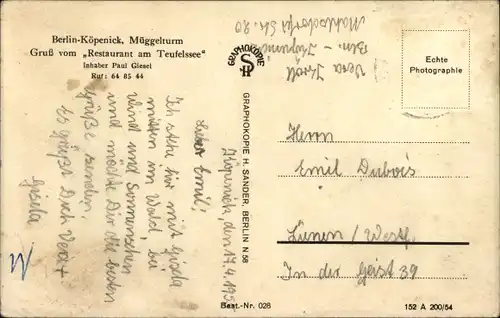 Berlin-Köpenick, Müggelturm
Gruß vom „Restaurant am Teufelssee"
Inhaber Paul Giesel
Ruf: 64 85 44
Vera Kroll
Bln - Köpenick
Mahlsdorfer Str. 20
GRAPHOKOPIE
GRAPHOKOPIE H. SANDER, BERLIN N 58
Echte
Photographie
Köpenick, den 17.4.195
Lieber Emil!
Ich stehe hier mit Gisela
mitten im Wald bei
Wind und Sonnenschein
und möchte Dir die besten
Grüße senden!
Es grüßt Dich Vera +
Gisela
Herrn
Emil Dubois
Lünen / Westf.
In der Geist 39
Best.-Nr. 028
152 A 200/54